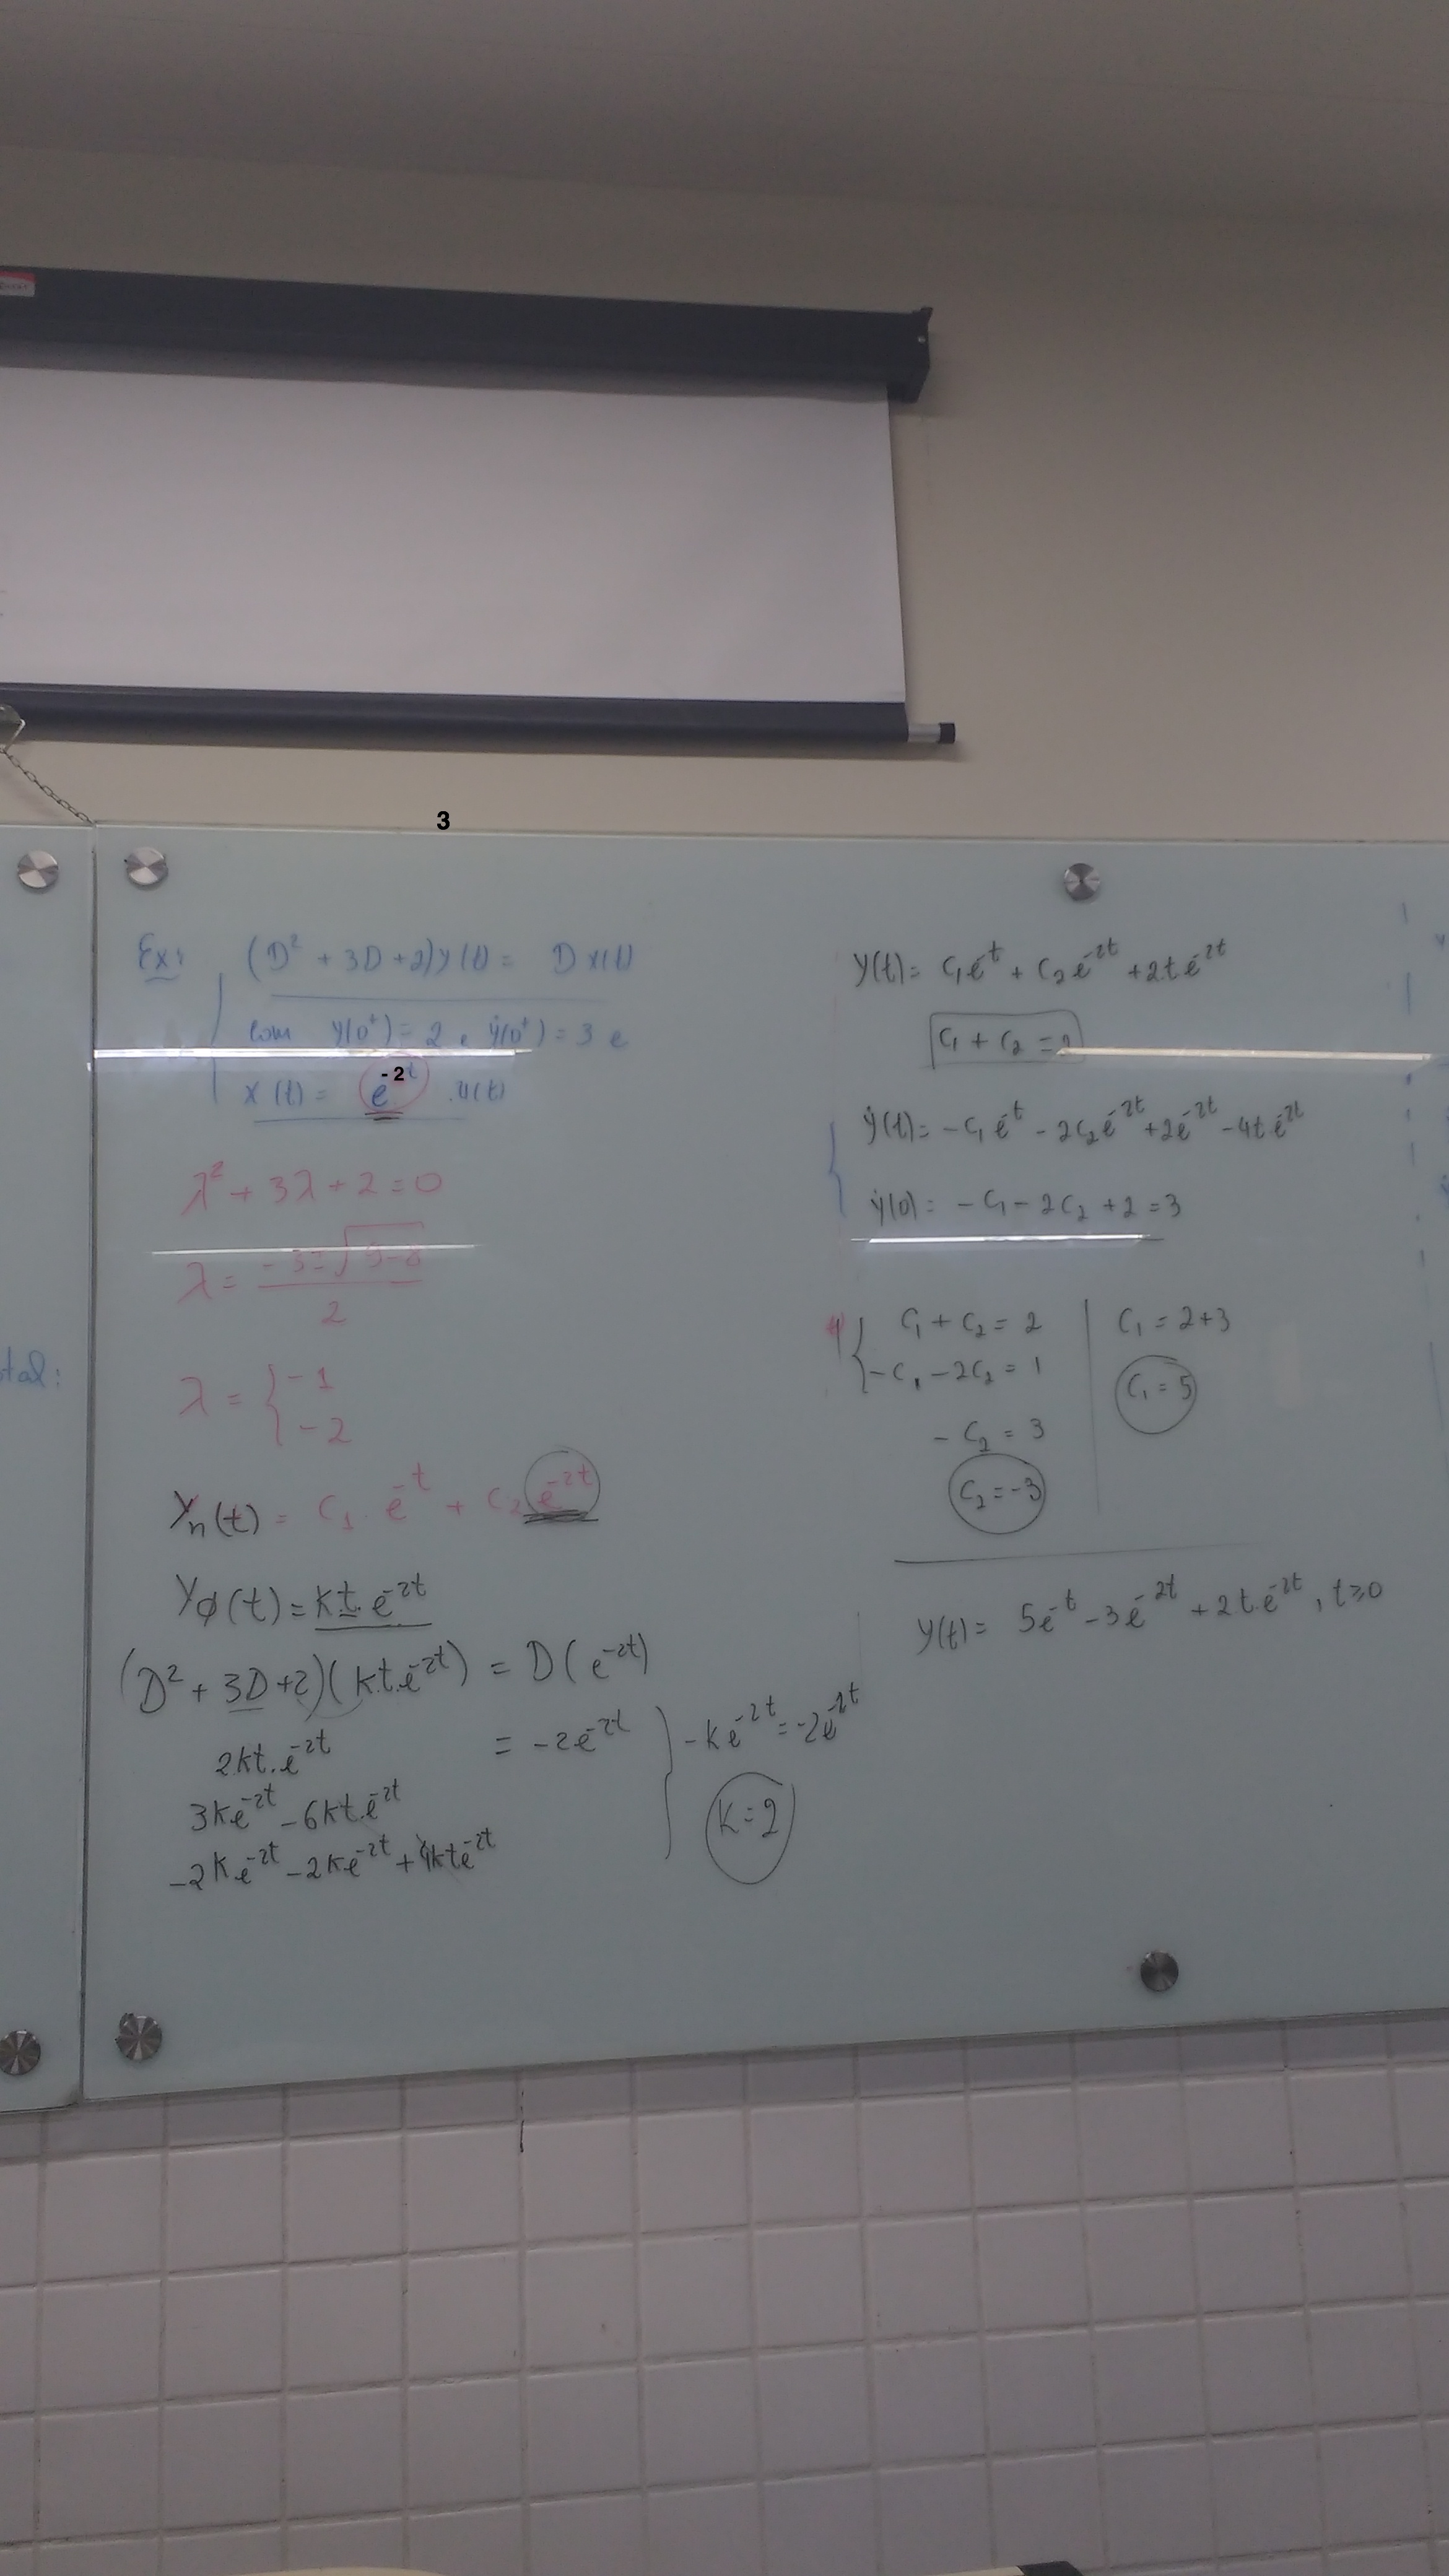 3
Ex: (D² + 3D + 2) y(t) = D x(t)
com y(0⁺) = 2, ẏ(0⁺) = 3 e
x(t) = e^-2t . u(t)
λ² + 3λ + 2 = 0
λ = -3 ± √9-8
2
λ = { -1
-2
yn(t) = C1 . e^-t + C2 e^-2t
yφ(t) = kt.e^-2t
(D² + 3D + 2)(k.t.e^-2t) = D(e^-2t)
2kt.e^-2t = -2e^-2t } -ke^-2t = -2e^-2t
3ke^-2t - 6kt.e^-2t
K = 2
-2ke^-2t - 2ke^-2t + 4kte^-2t
y(t) = C1e^-t + C2e^-2t + 2te^-2t
C1 + C2 = 2
ẏ(t) = -C1e^-t - 2C2e^-2t + 2e^-2t - 4t.e^-2t
ẏ(0) = -C1 - 2C2 + 2 = 3
{ C1 + C2 = 2 | C1 = 2+3
-C1 - 2C2 = 1 | C1 = 5
-C2 = 3
C2 = -3
y(t) = 5e^-t - 3e^-2t + 2t.e^-2t, t≥0
tal: